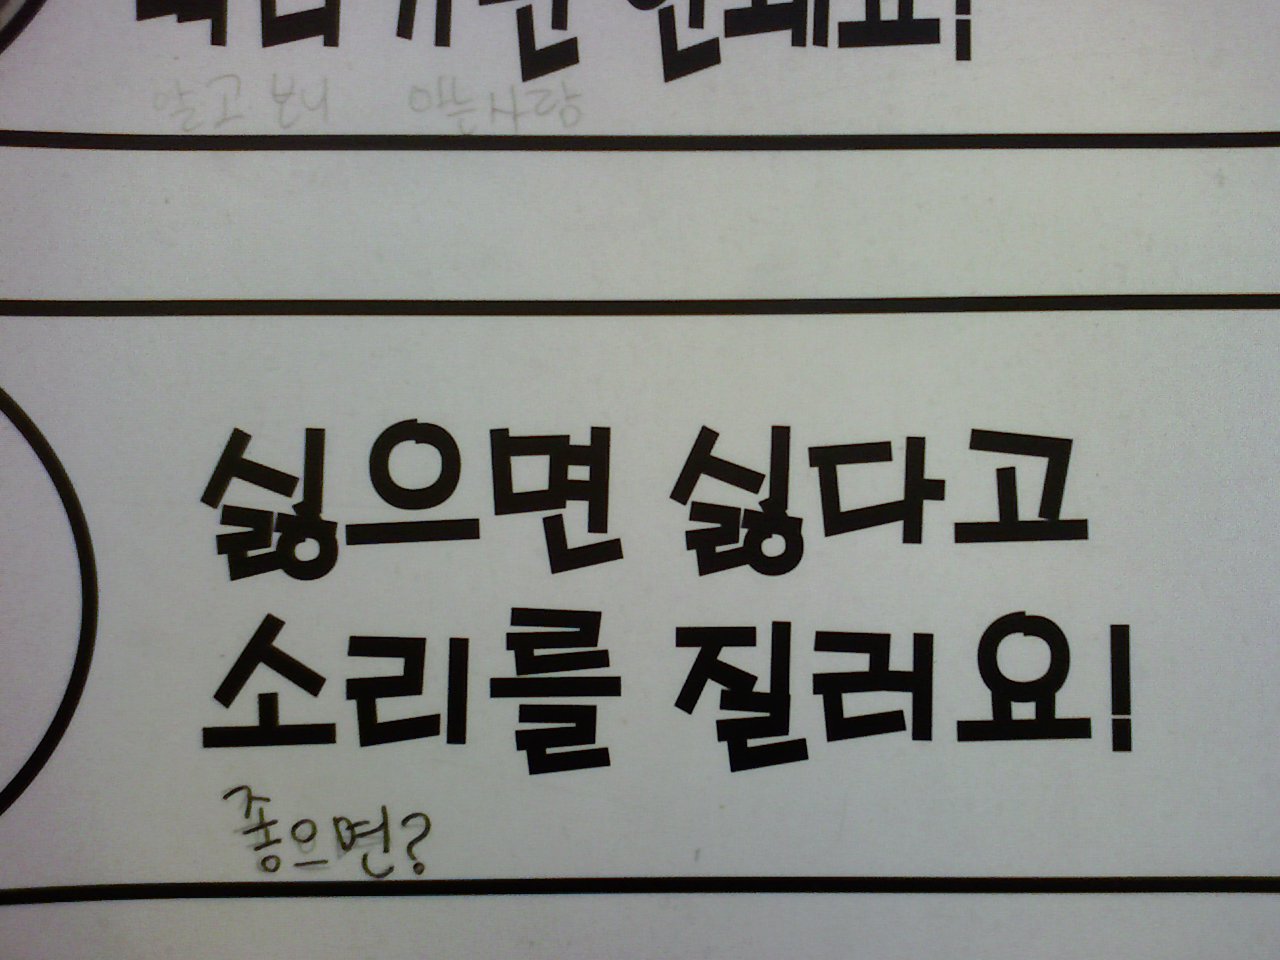 안돼요!
알고 보니 아는사람
싫으면 싫다고
소리를 질러요!
좋으면?